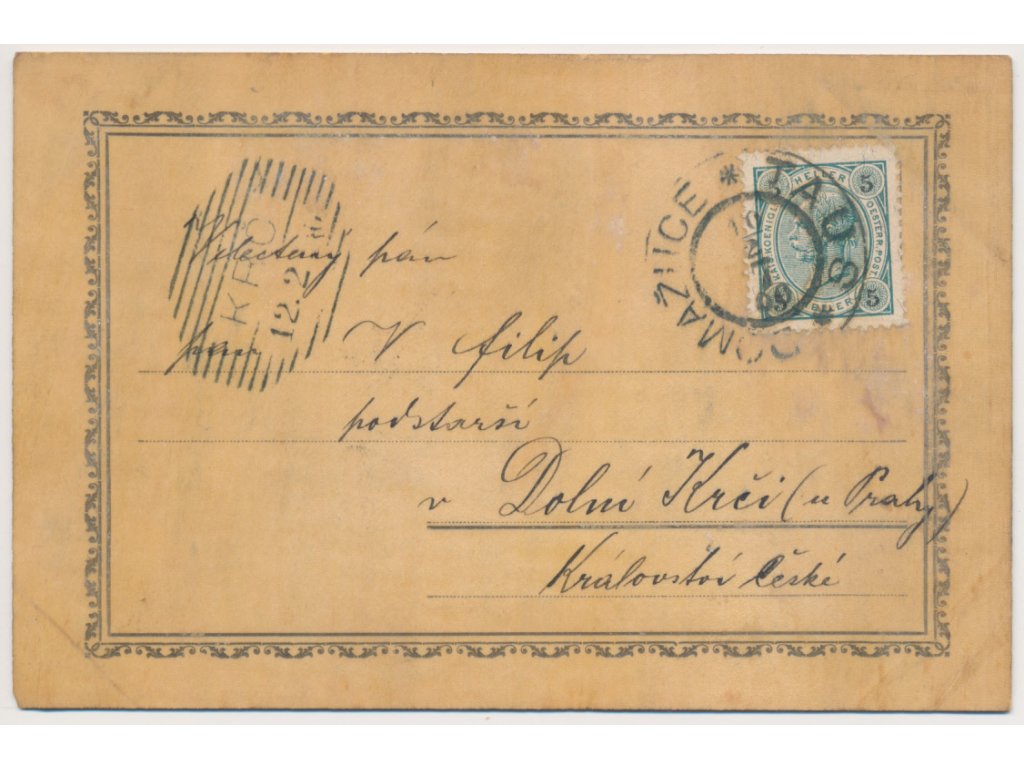 KAIS. KOENIGL. OESTERR. POST.
HELLER
5
5
TAUS * DOMAŽLICE *
KRČ
12.2
Velectený pán
pan V. Filip
podstarší
v Dolní Krči (u Prahy)
Království České